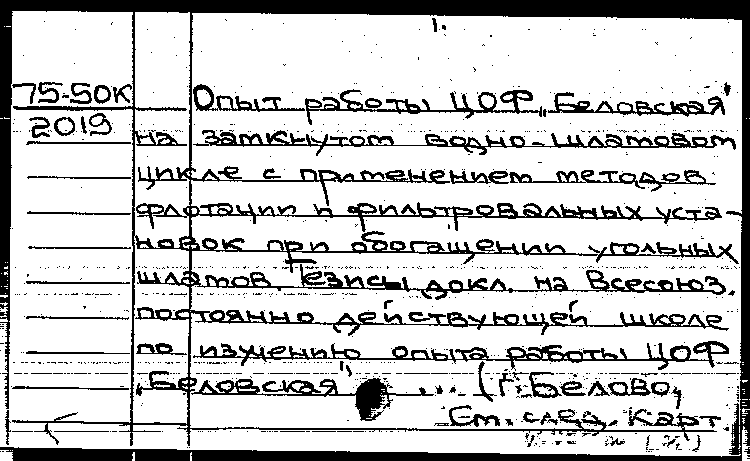 1.
75-50К Опыт работы ЦОФ „Беловская"
2019 на замкнутом водно-шламовом
цикле с применением методов
флотации и фильтровальных уста-
новок при обогащении угольных
шламов. Тезисы докл. на Всесоюз.
постоянно действующей школе
по изучению опыта работы ЦОФ
„Беловская" ... (г. Белово,
См. след. карт.